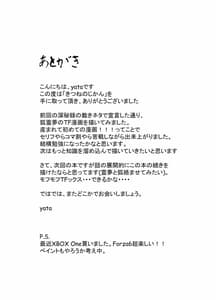 あとがき
こんにちは、yataです
この度は「きつねのじかん」を
手に取って頂き、ありがとうございました
前回の深秘録の裁きネタで宣言した通り、
狐霊夢のTF漫画を描いてみました。
産まれて初めての漫画!!!ってことで
セリフやらコマ割やら苦戦しながら出来上がりました。
結構勉強になったかなと思っています。
次はもっと知識を溜め込んで描いていきたいと思います
さて、次回の本ですが話の展開的にこの本の続きを
描けたならと思ってます(霊夢と狐絡ませてみたい)。
モフモフTFックス・・・できるかな・・・
ではでは、またどこかでお会いしましょう。
yata
P.S.
最近XBOX One買いました。Forza6超楽しい!!
ペイントもやろうか考え中。